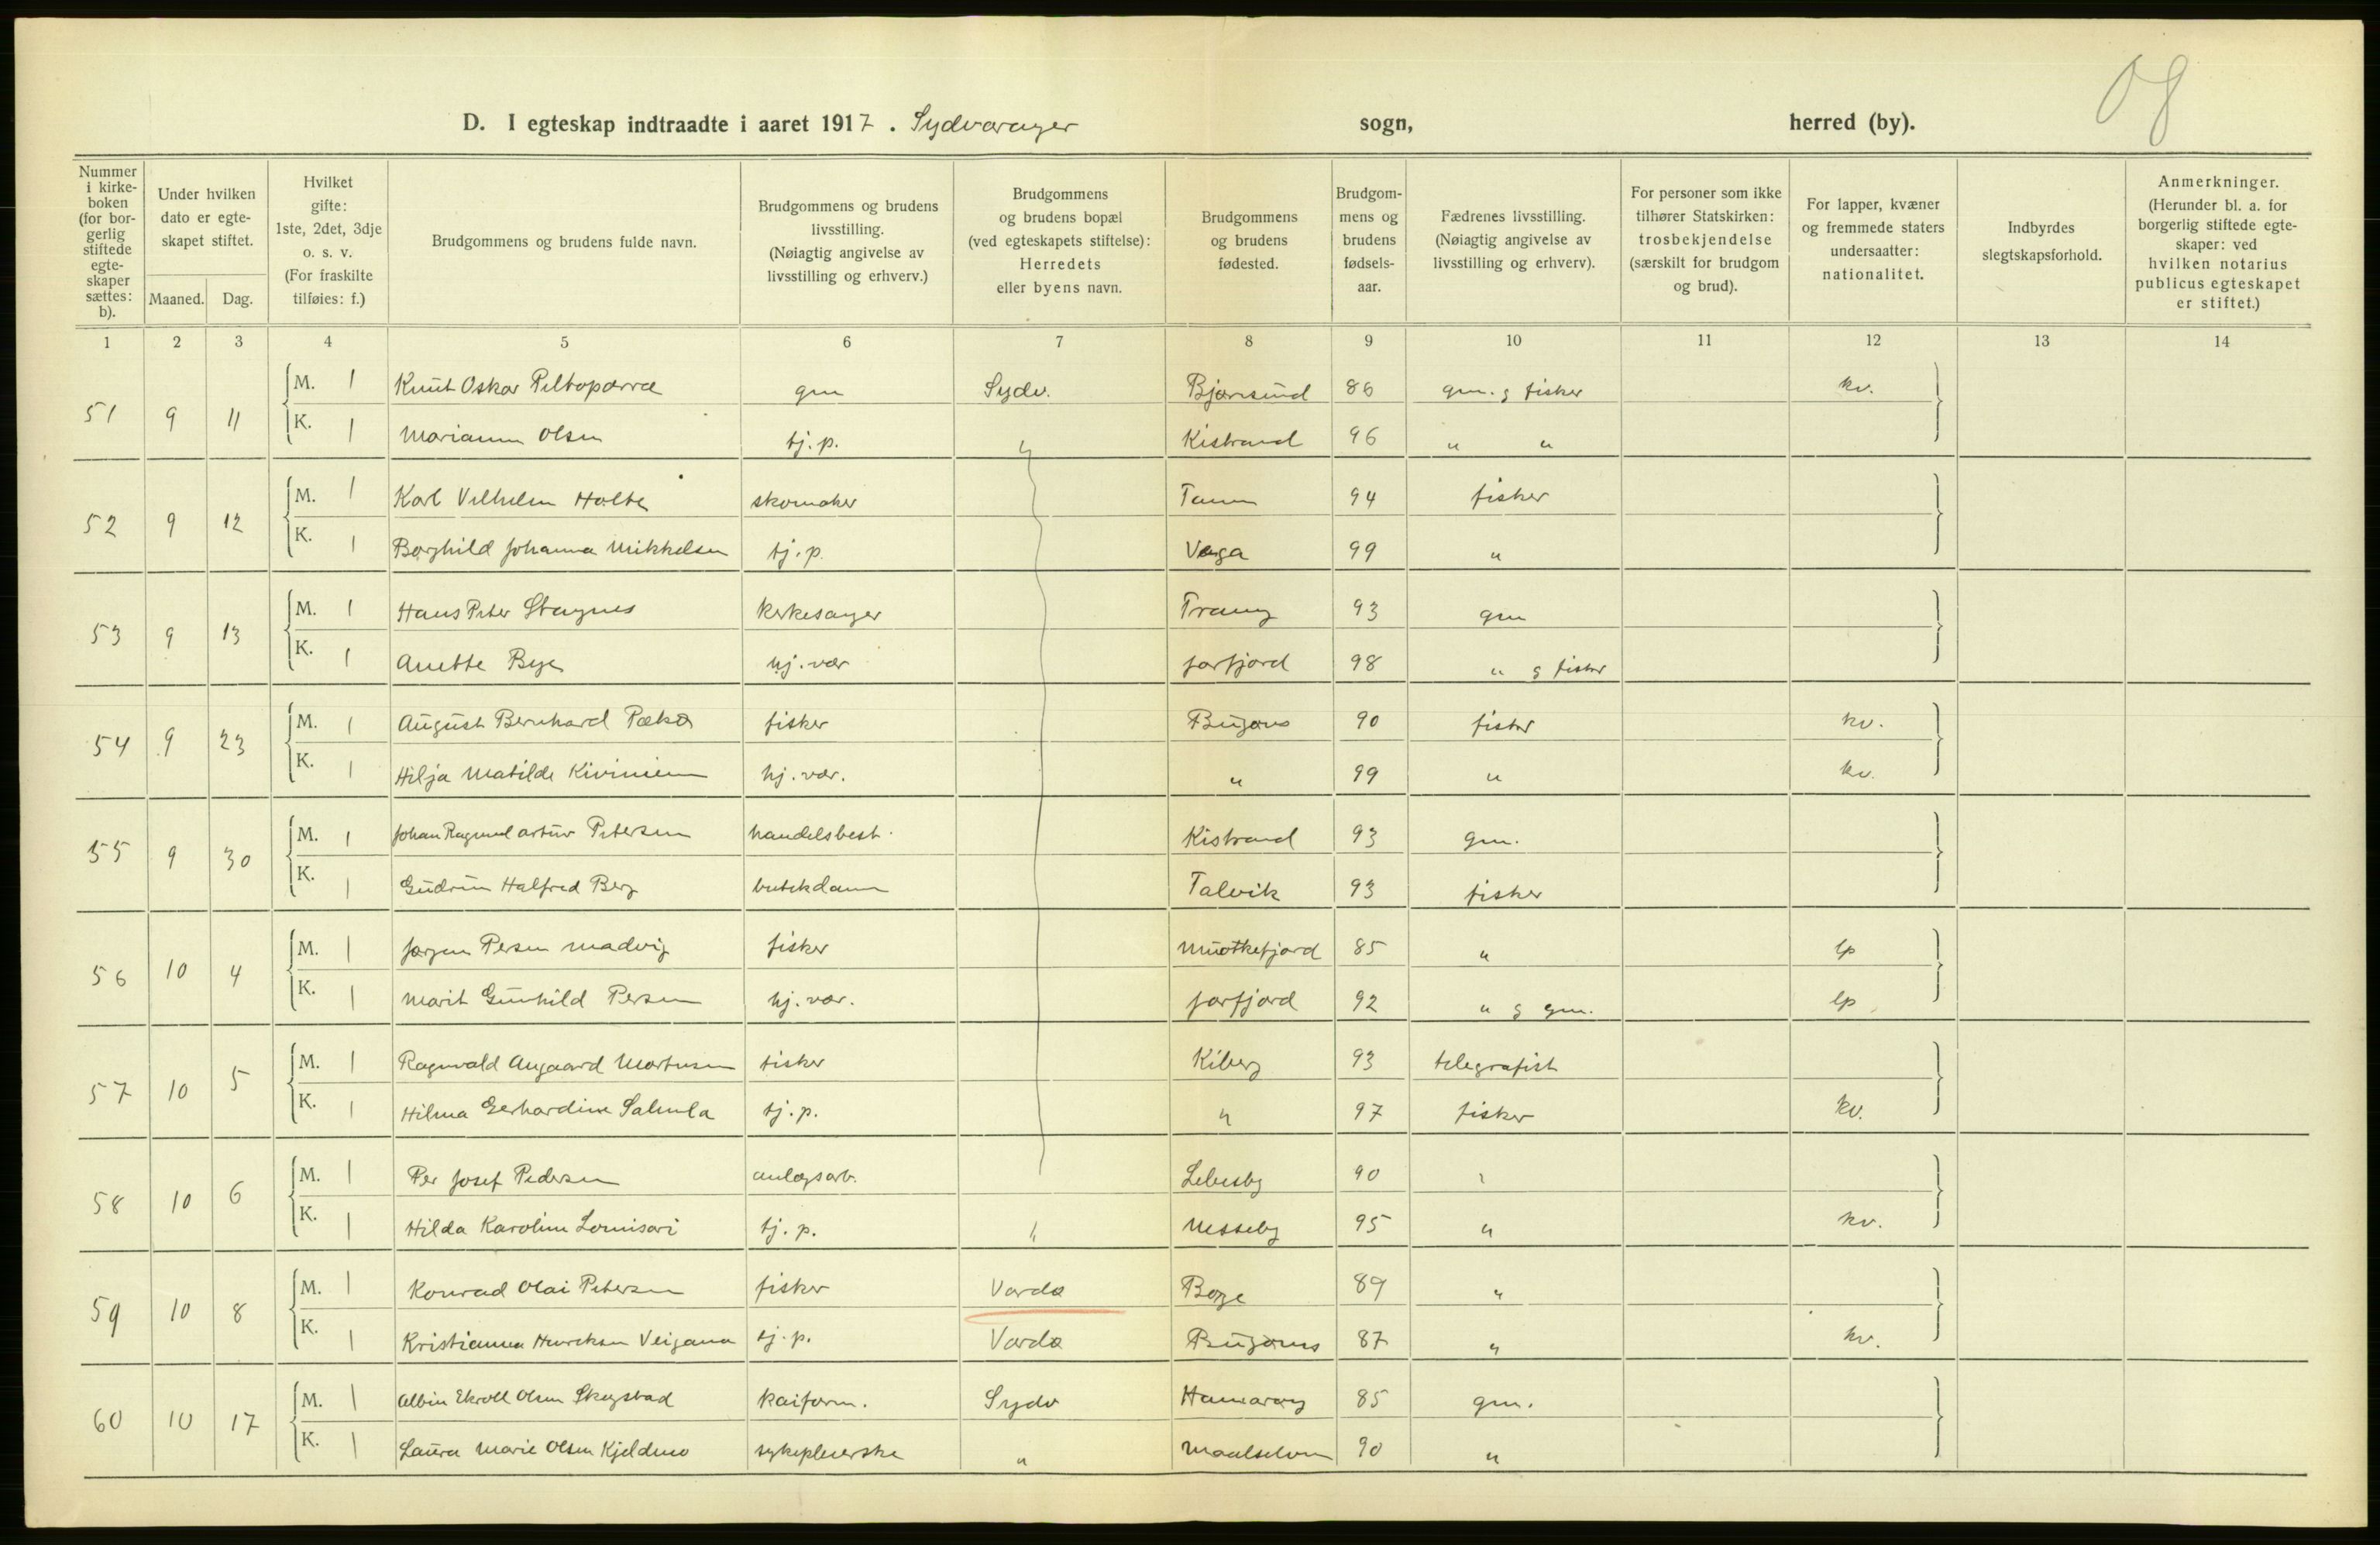 08
D. I egteskap indtraadte i aaret 1917. Sydvaranger sogn, herred (by).
Nummer i kirkeboken (for borgerlig stiftede egteskaper sættes: b).
Under hvilken dato er egteskapet stiftet.
Maaned. Dag.
Hvilket gifte: 1ste, 2det, 3dje o. s. v. (For fraskilte tilføies: f.)
Brudgommens og brudens fulde navn.
Brudgommens og brudens livsstilling. (Nøiagtig angivelse av livsstilling og erhverv.)
Brudgommens og brudens bopæl (ved egteskapets stiftelse): Herredets eller byens navn.
Brudgommens og brudens fødested.
Brudgommens og brudens fødselsaar.
Fædrenes livsstilling. (Nøiagtig angivelse av livsstilling og erhverv).
For personer som ikke tilhører Statskirken: trosbekjendelse (særskilt for brudgom og brud).
For lapper, kvæner og fremmede staters undersaatter: nationalitet.
Indbyrdes slegtskapsforhold.
Anmerkninger. (Herunder bl. a. for borgerlig stiftede egteskaper: ved hvilken notarius publicus egteskapet er stiftet.)
1 2 3 4 5 6 7 8 9 10 11 12 13 14
51 9 11 M. 1 Knut Oskar gm Sydv. 86 gm. g fisker kv.
K. 1 Olsen tj. p. " Kistrand 96 " "
52 9 12 M. 1 Karl Vilhelm Holte skomaker Tanen 94 fisker
K. 1 Borghild Johanna Mikkelsen tj. p. Vega 99 "
53 9 13 M. 1 Hans Peter kirkesanger Tranøy 93 gm
K. 1 Anette Bye hj. vær Jarfjord 98 " g fisker
54 9 23 M. 1 August Bernhard fisker Bugøns 90 fisker kv.
K. 1 Hilja Matilde Kiviniem hj. vær. " 99 " kv.
55 9 30 M. 1 Johan Artur Petersen handelsbest. Kistrand 93 gm.
K. 1 Gudrun Halfred Berg butikdame Talvik 93 fisker
56 10 4 M. 1 Jørgen Persen Madvig fisker Muotkefjord 85 " lp
K. 1 Marit Gunhild Persen hj. vær. Jarfjord 92 " g gm. lp
57 10 5 M. 1 Ragnvald Augaard Mortensen fisker Kiberg 93 telegrafist
K. 1 Hilma Gerhardine Salmla tj. p. " 97 fisker kv.
58 10 6 M. 1 Per Josef Pedersen anlægsarb. Lebesby 90 "
K. 1 Hilda Karoline Lomisari tj. p. " Nesseby 95 " kv.
59 10 8 M. 1 Konrad Olai Petersen fisker Vardø Borge 89 "
K. 1 Kristianna Henriksen tj. p. Vardø Bugøns 87 " kv.
60 10 17 M. 1 Albin Ekroll Olsen kaiform. Sydv Hamarøy 85 gm.
K. 1 Laura Marie Olsen Kjeldmo sykepleierske " Maalselven 90 "